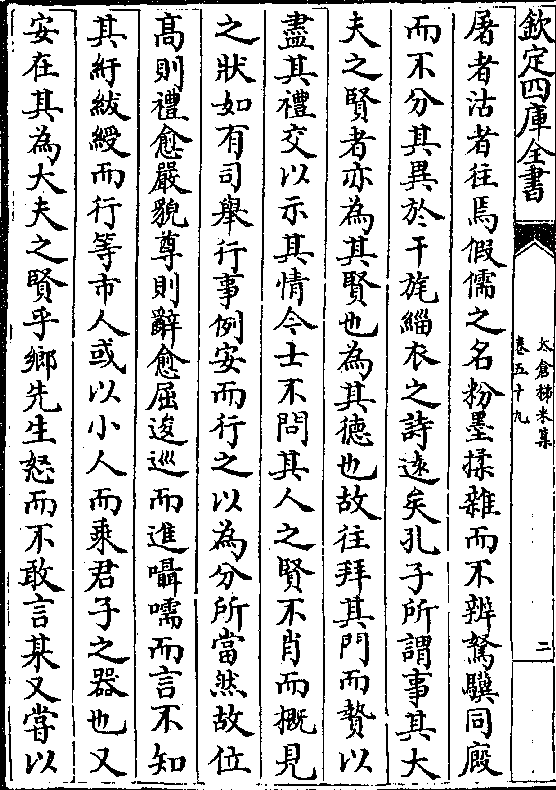 欽定四庫全書
太倉稊米集
卷五十九
二
屠者沽者往焉假儒之名粉墨揉雜而不辨駑驥同廐
而不分其異於干旄緇衣之詩遠矣孔子所謂事其大
夫之賢者亦為其賢也為其德也故往拜其門而贄以
盡其禮交以示其情今士不問其人之賢不肖而概見
之狀如有司舉行事例安而行之以為分所當然故位
髙則禮愈嚴貌尊則辭愈屈逡巡而進囁嚅而言不知
其紆紱綬而行等市人或以小人而乘君子之器也又
安在其為大夫之賢乎鄉先生怒而不敢言某又嘗以